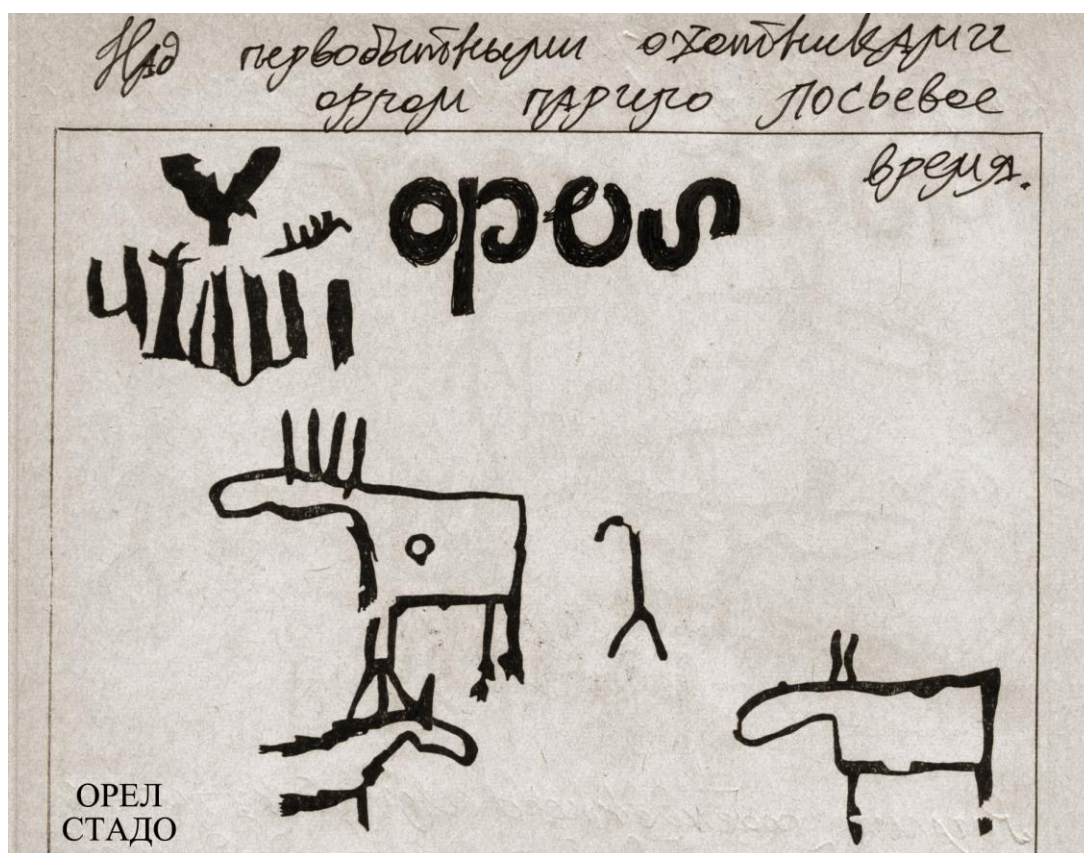 Над первобытными охотниками
орлом парило лосьевое
время.
орел
ОРЕЛ
СТАДО